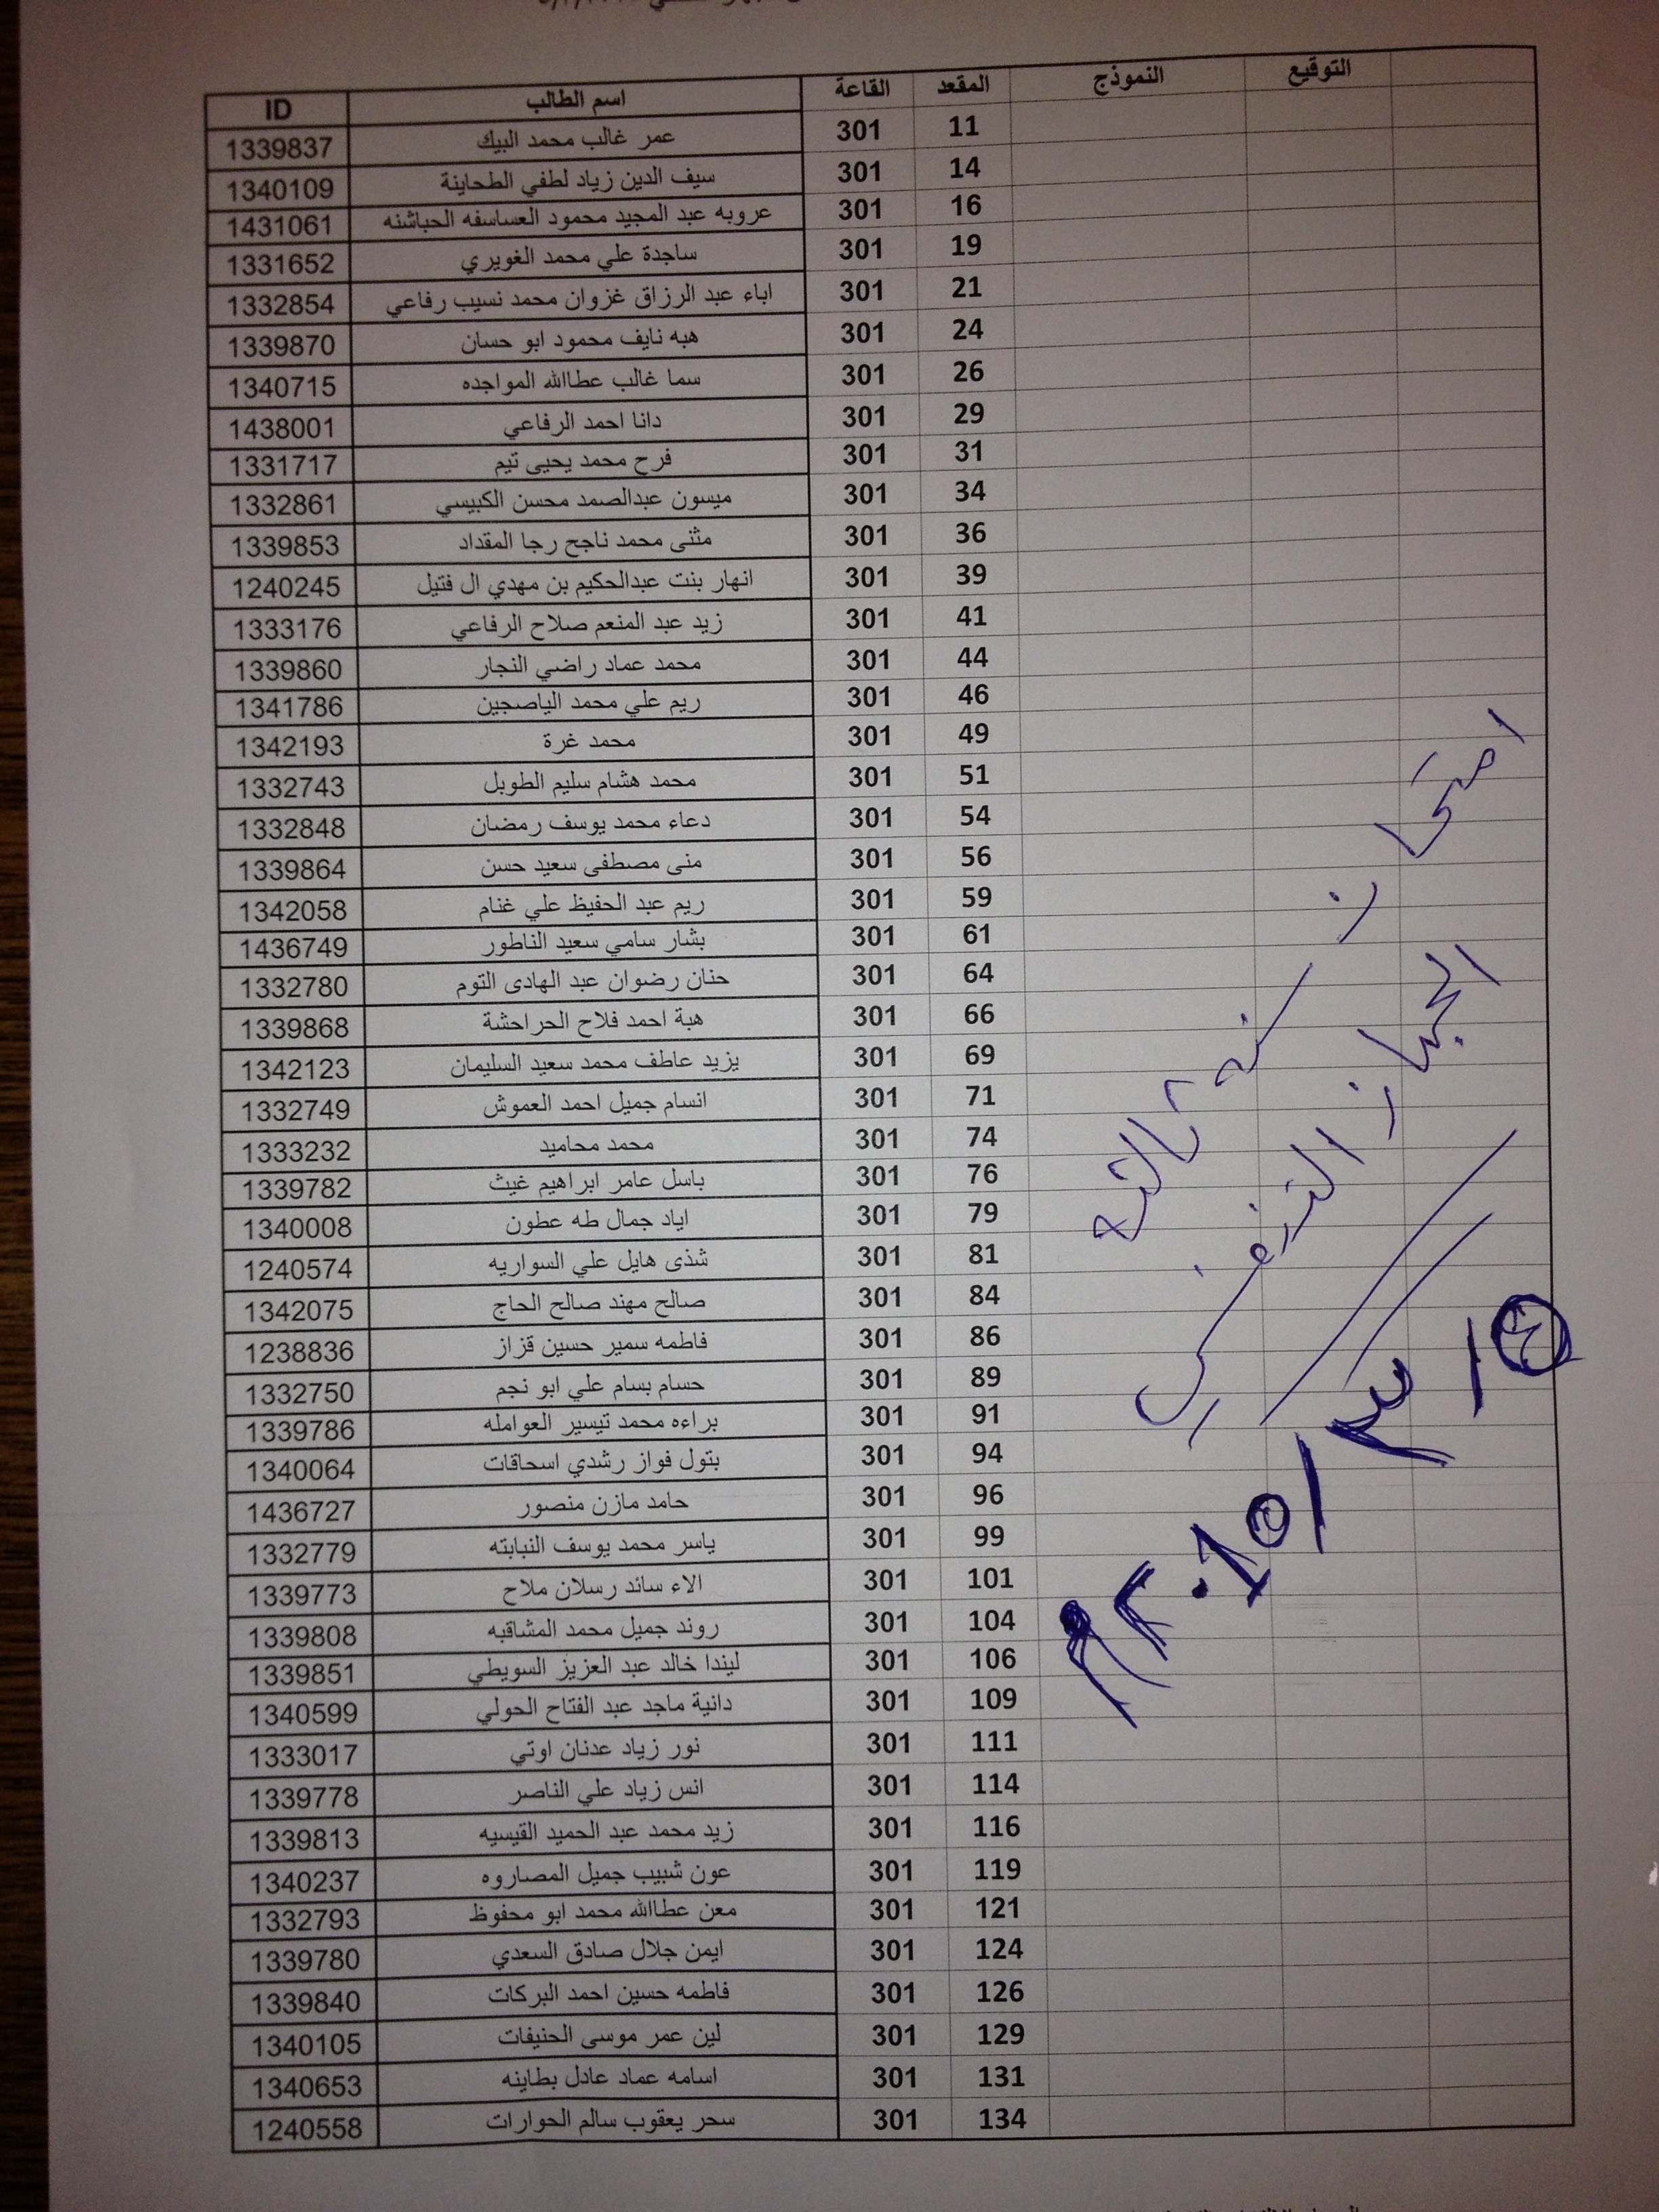 ID اسم الطالب القاعة المقعد النموذج التوقيع
1339837 عمر غالب محمد البيك 301 11
1340109 سيف الدين زياد لطفي الطحاينة 301 14
1431061 عروبه عبد المجيد محمود العساسفه الحباشنه 301 16
1331652 ساجدة علي محمد الغويري 301 19
1332854 اباء عبد الرزاق غزوان محمد نسيب رفاعي 301 21
1339870 هبه نايف محمود ابو حسان 301 24
1340715 سما غالب عطاالله المواجده 301 26
1438001 دانا احمد الرفاعي 301 29
1331717 فرح محمد يحيى تيم 301 31
1332861 ميسون عبدالصمد محسن الكبيسي 301 34
1339853 مثنى محمد ناجح رجا المقداد 301 36
1240245 انهار بنت عبدالحكيم بن مهدي ال فتيل 301 39
1333176 زيد عبد المنعم صلاح الرفاعي 301 41
1339860 محمد عماد راضي النجار 301 44
1341786 ريم علي محمد الياصجين 301 46
1342193 محمد غرة 301 49
1332743 محمد هشام سليم الطويل 301 51
1332848 دعاء محمد يوسف رمضان 301 54
1339864 منى مصطفى سعيد حسن 301 56
1342058 ريم عبد الحفيظ علي غنام 301 59
1436749 بشار سامي سعيد الناطور 301 61
1332780 حنان رضوان عبد الهادى التوم 301 64
1339868 هبة احمد فلاح الحراحشة 301 66
1342123 يزيد عاطف محمد سعيد السليمان 301 69
1332749 انسام جميل احمد العموش 301 71
1333232 محمد محاميد 301 74
1339782 باسل عامر ابراهيم غيث 301 76
1340008 اياد جمال طه عطون 301 79
1240574 شذى هايل علي السواريه 301 81
1342075 صالح مهند صالح الحاج 301 84
1238836 فاطمه سمير حسين قزاز 301 86
1332750 حسام بسام علي ابو نجم 301 89
1339786 براءه محمد تيسير العوامله 301 91
1340064 بتول فواز رشدي اسحاقات 301 94
1436727 حامد مازن منصور 301 96
1332779 ياسر محمد يوسف النبابته 301 99
1339773 الاء سائد رسلان ملاح 301 101
1339808 روند جميل محمد المشاقبه 301 104
1339851 ليندا خالد عبد العزيز السويطي 301 106
1340599 دانية ماجد عبد الفتاح الحولي 301 109
1333017 نور زياد عدنان اوتي 301 111
1339778 انس زياد علي الناصر 301 114
1339813 زيد محمد عبد الحميد القيسيه 301 116
1340237 عون شبيب جميل المصاروه 301 119
1332793 معن عطاالله محمد ابو محفوظ 301 121
1339780 ايمن جلال صادق السعدي 301 124
1339840 فاطمه حسين احمد البركات 301 126
1340105 لين عمر موسى الحنيفات 301 129
1340653 اسامه عماد عادل بطاينه 301 131
1240558 سحر يعقوب سالم الحوارات 301 134
امتحان سنة ثالثه
الجهاز التنفسي
٤/٣/٢٠١٥م